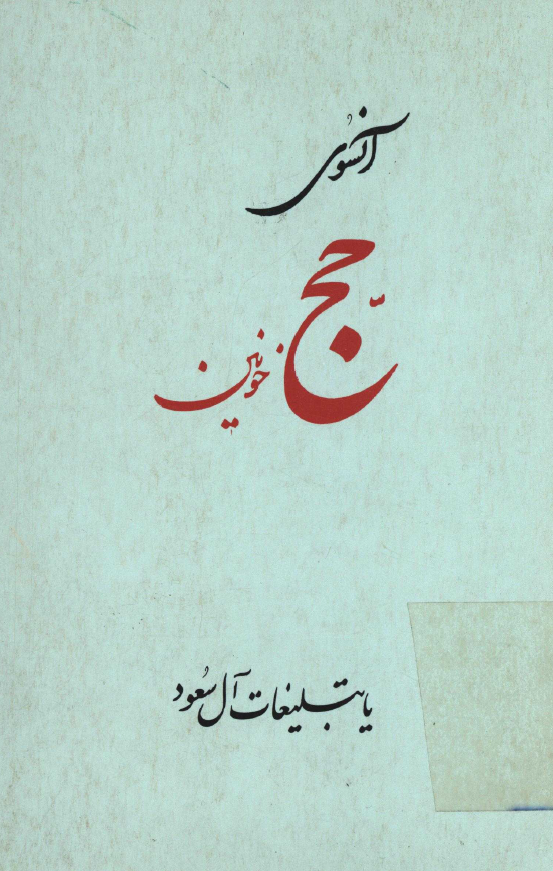 آنسُوی
حجّ خونین
یا تبلیغات آل سُعود